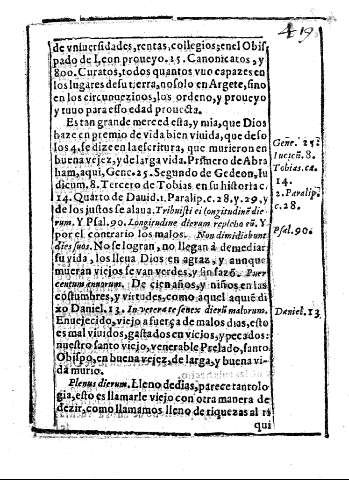 419
de vniuersidades, rentas, collegios; en el Obis
pado de Leon proueyo. 15. Canonicatos, y
800. Curatos, todos quantos vuo capazes en
los lugares de su tierra, no solo en Argete, sino
en los circunuezinos, los ordeno, y proueyo
y tuuo para esso edad prouecta.
Es tan grande merced esta, y mia, que Dios
haze en premio de vida bien viuida, que de so
los 4. se dize en la escritura, que murieron en
buena vejez, y de larga vida. Primero de Abra
ham, aqui, Genc. 25. Segundo de Gedeon, Iu
dicum. 8. Tercero de Tobias en su historia c.
14. Quarto de Dauid. 1. Paralip. c. 28. y. 29, y
de los justos se alaua. Tribuisti ei longitudinē die
rum. Y Psal. 90. Longitudine dierum replebo eū. Y
por el contrario los malos. Non dimidiabunt
dies suos. No se logran, no llegan à demediar
su vida, los lleua Dios en agraz, y aunque
mueran viejos se van verdes, y sin sazō. Puer
centum annorum. De cien años, y niños en las
costumbres, y virtudes, como aquel a quiē di
xo Daniel. 13. Inveterate senex dierū malorum.
Enuejecido, viejo a fuerça de malos dias, esto
es mal viuidos, gastados en vicios, y pecados:
nuestro santo viejo, venerable Prelado, santo
Obispo, en buena vejez, de larga, y buena vi-
da murio.
Plenus dierum. Lleno de dias, parece tantolo
gia, esto es llamarle viejo con otra manera de
dezir, como llamamos lleno de riquezas al ri
qui
Gene. 25.
Iudicū. 8.
Tobias. ca.
14.
2. Paralip.
c. 28.
Psal. 90.
Daniel. 13.